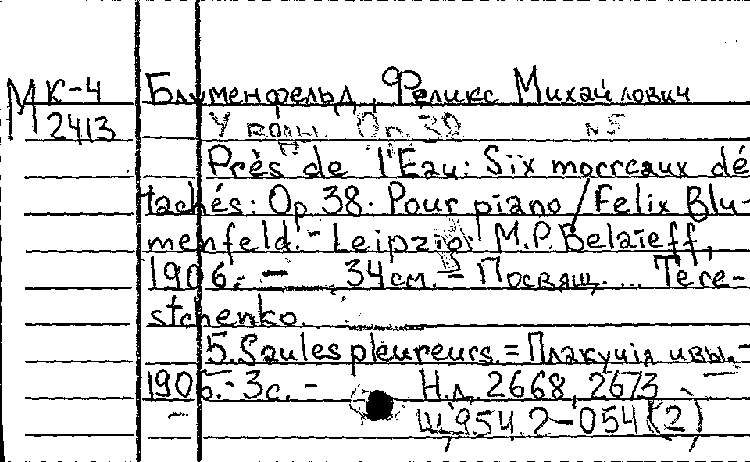 М К-4 Блуменфельд, Феликс Михайлович
2413 У воды. Op. 38 N 5
Près de l'Eau: Six morceaux dé-
tachés: Op 38. Pour piano / Felix Blu-
menfeld. - Leipzig: M.P. Belaïeff,
1906. - 34 см. - Посвящ. ... Tere-
stchenko.
5. Saules pleureurs. = Плакучія ивы. -
1906. - 3 с. - Н.д. 2668, 2673
Щ 954.2-054 (2)